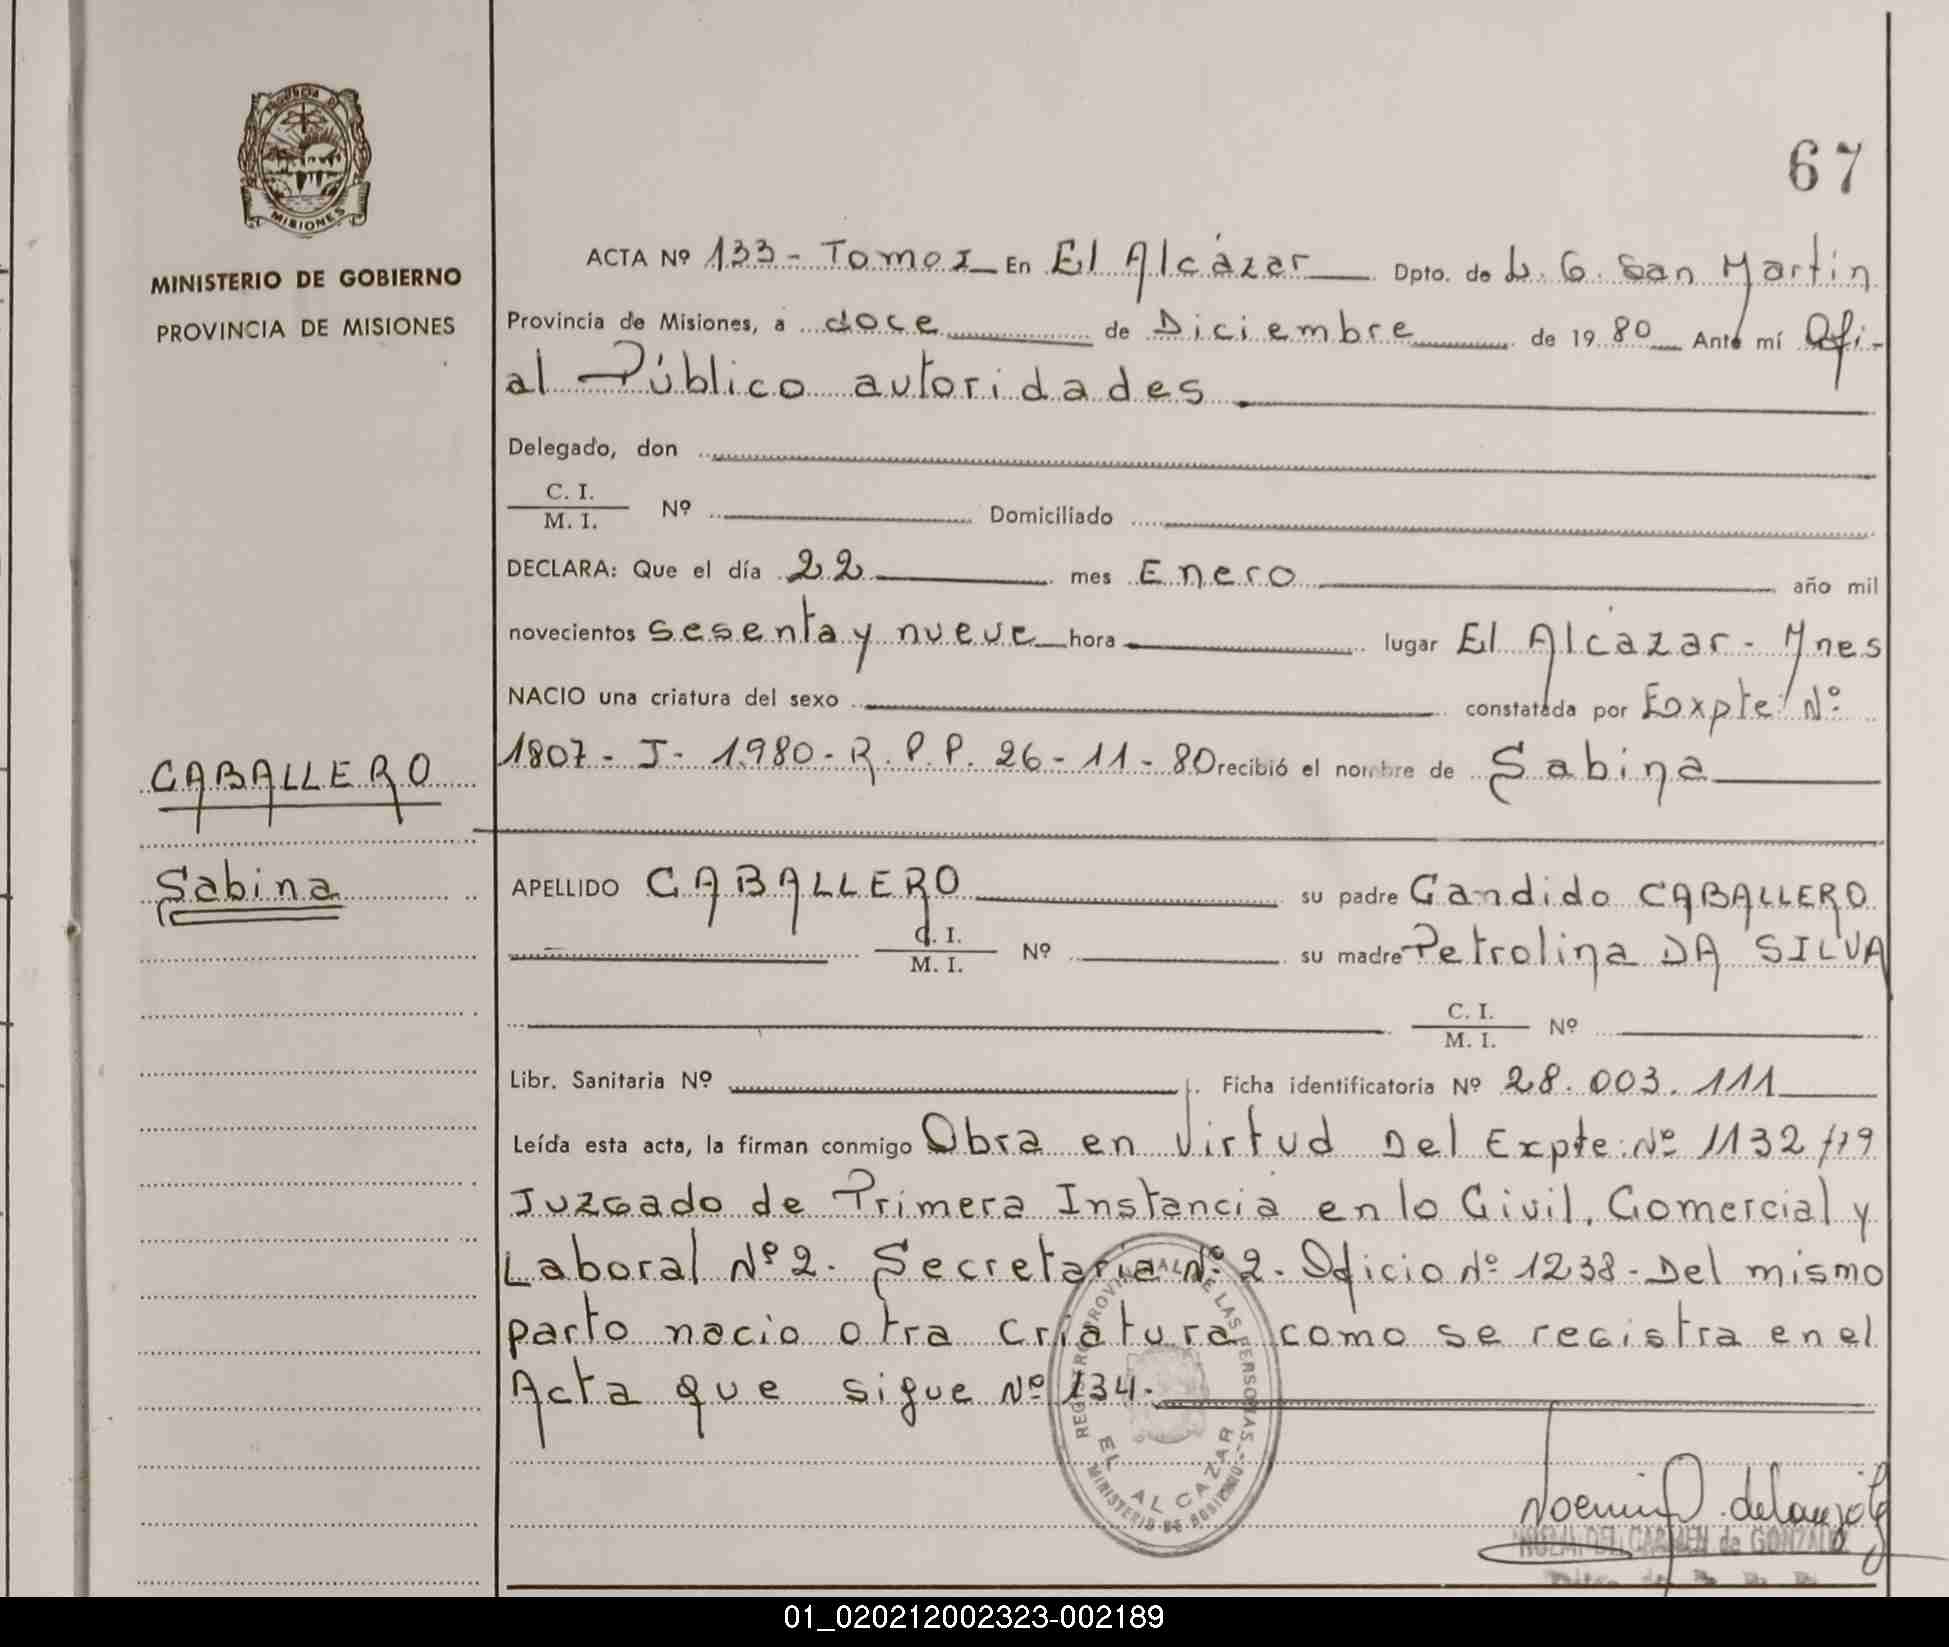 PROVINCIA DE
MISIONES
MINISTERIO DE GOBIERNO
PROVINCIA DE MISIONES
67
ACTA Nº 133 - Tomo I En El Alcázar Dpto. de L. G. San Martin
Provincia de Misiones, a doce de Diciembre de 1980 Ante mí Ofi-
al Público autoridades
Delegado, don
C. I.
M. I. Nº Domiciliado
DECLARA: Que el día 22 mes Enero año mil
novecientos sesenta y nueve hora lugar El Alcázar - Mnes
NACIO una criatura del sexo constatada por Expte: Nº
1807 - J - 1980 - R. P. P. 26 - 11 - 80 recibió el nombre de Sabina
CABALLERO
Sabina
APELLIDO CABALLERO su padre Candido CABALLERO
C. I.
M. I. Nº su madre Petrolina DA SILVA
C. I.
M. I. Nº
Libr. Sanitaria Nº Ficha identificatoria Nº 28.003.111
Leída esta acta, la firman conmigo Obra en Virtud Del Expte: Nº 1132/79
Juzgado de Primera Instancia en lo Civil, Comercial y
Laboral Nº 2. Secretaría Nº 2. Oficio Nº 1238 - Del mismo
parto nacio otra criatura como se registra en el
Acta que sigue Nº 134.
REGISTRO PROVINCIAL DE LAS PERSONAS
EL ALCAZAR
MINISTERIO DE GOBIERNO
NOEMI DEL CARMEN de
01_020212002323-002189